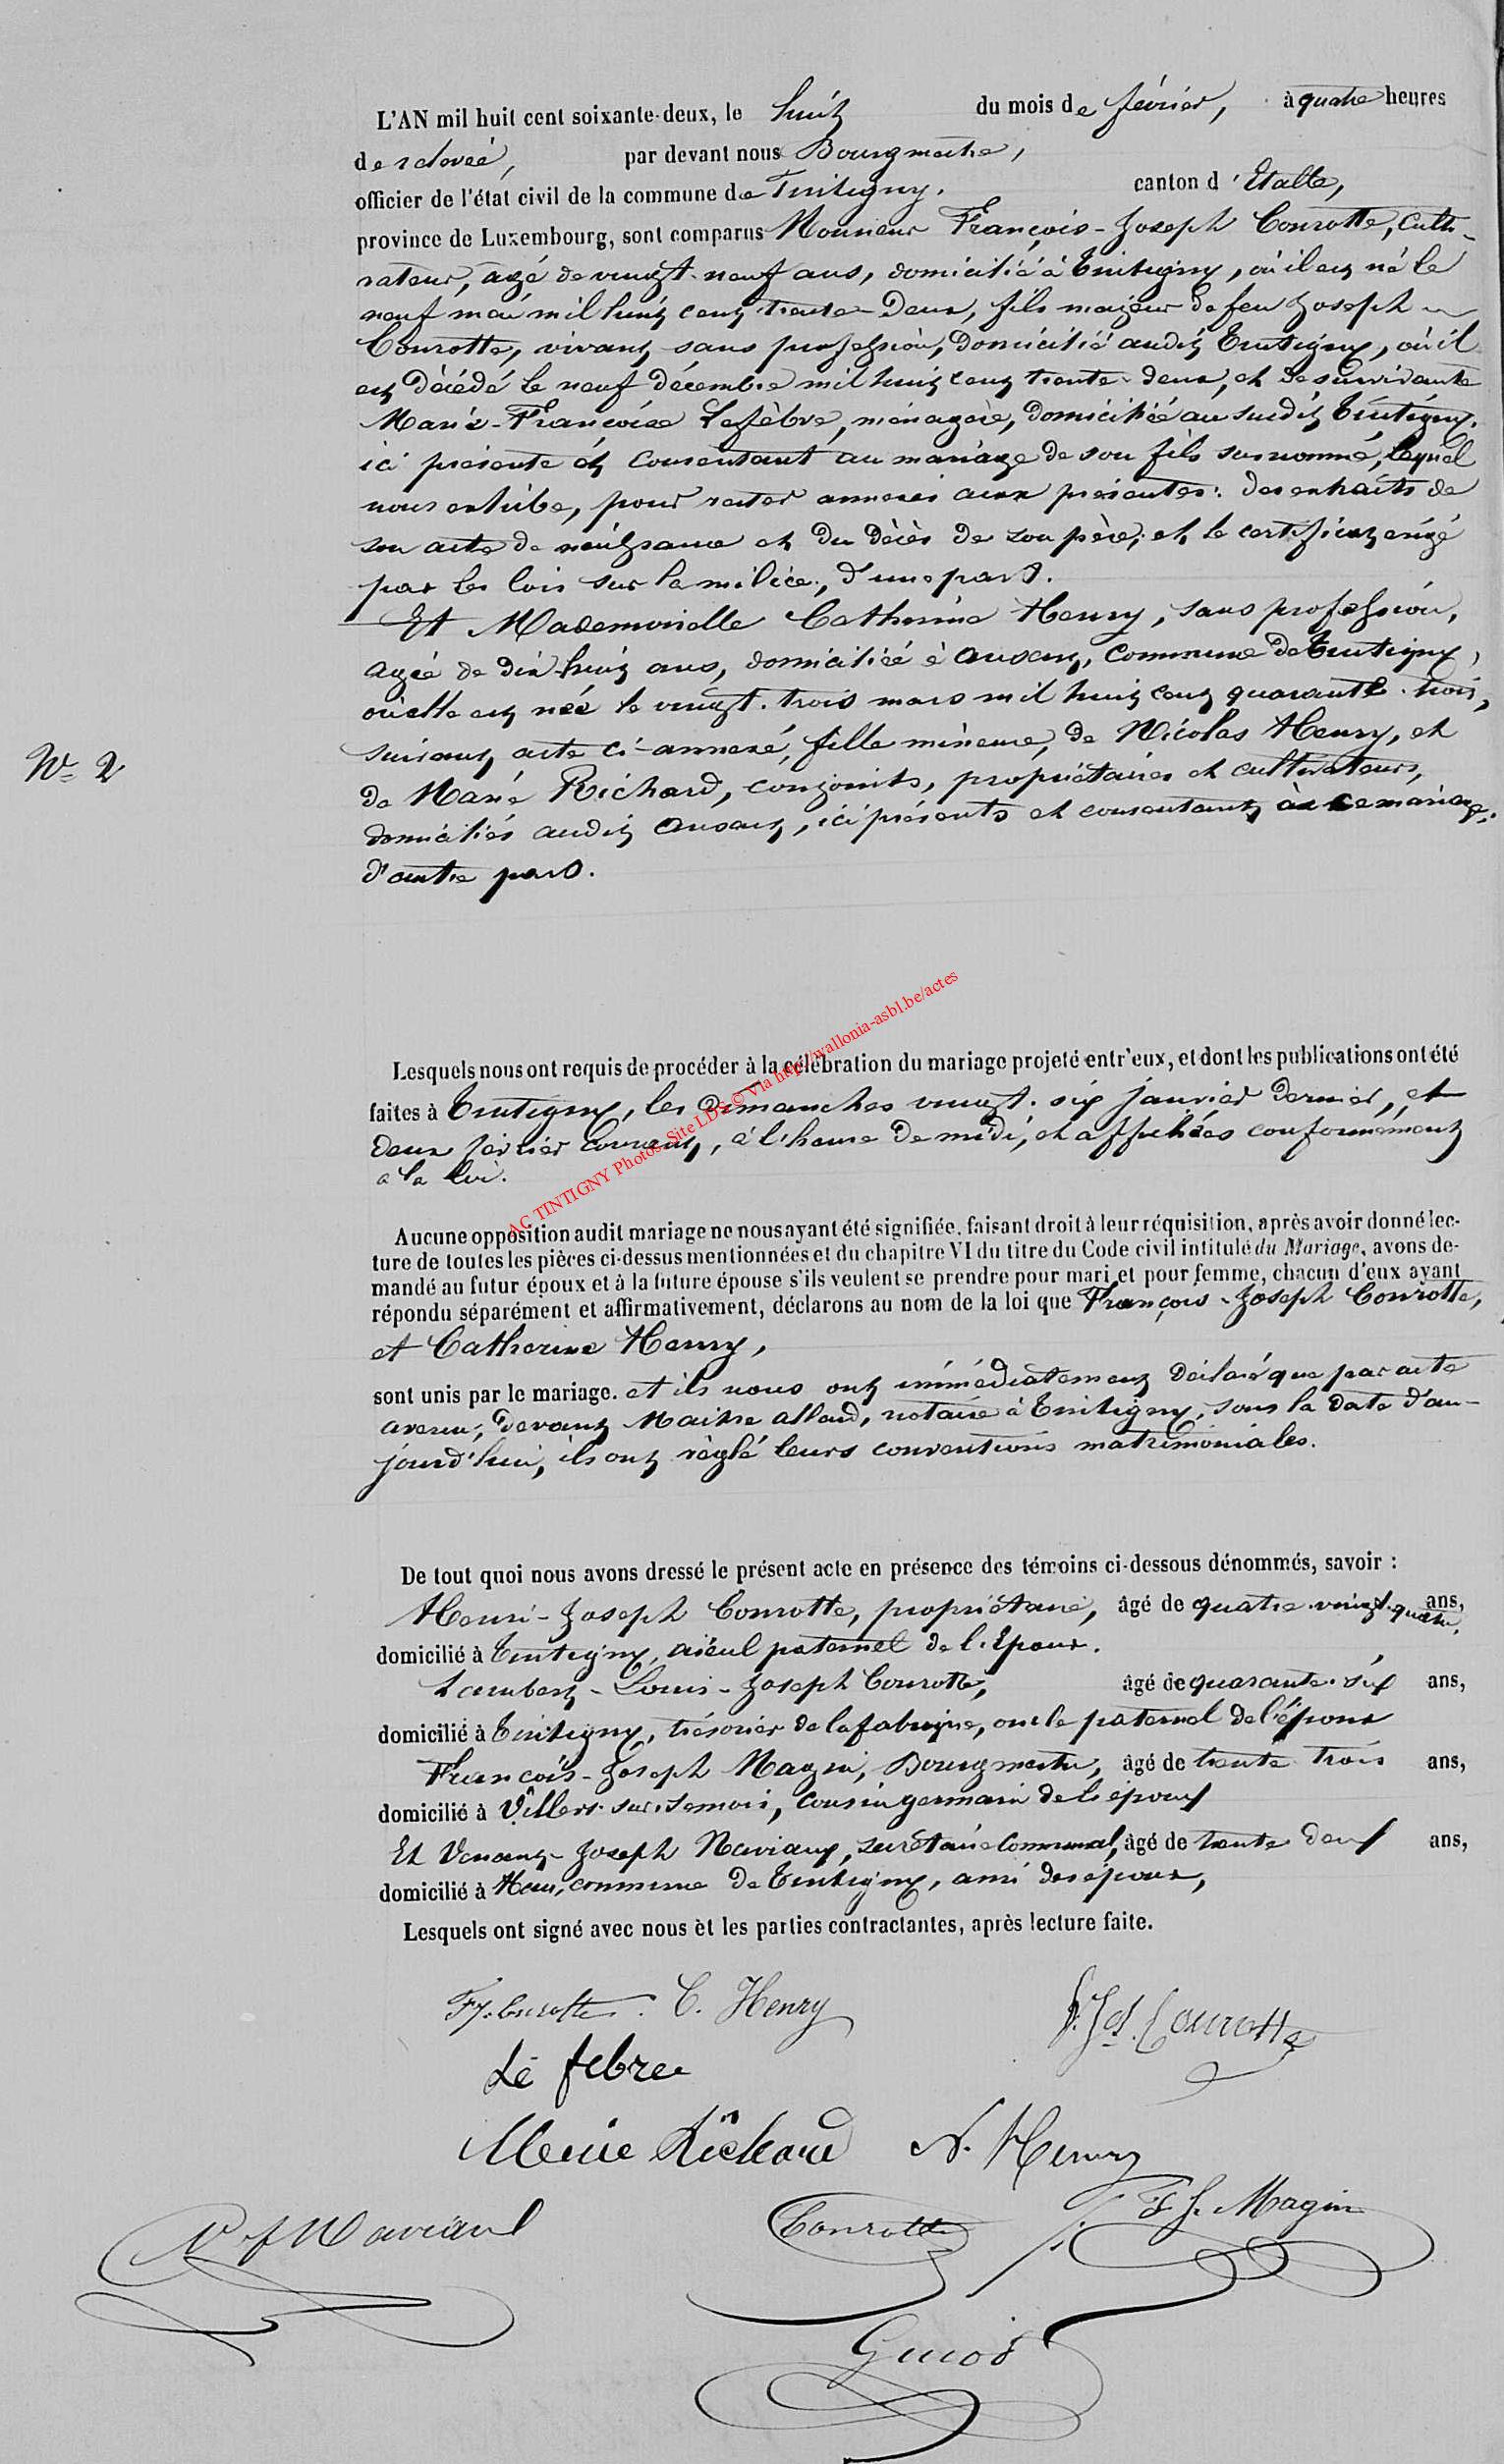 L'AN mil huit cent soixante-deux, le huit du mois de février, à quatre heures
de relevée, par devant nous Bourgmestre,
officier de l'état civil de la commune de Tintigny, canton d'Etalle,
province de Luxembourg, sont comparus Monsieur François-Joseph Conrotte, culti-
vateur, agé de vingt-neuf ans, domicilié à Tintigny, où il est né le
neuf mai mil huit cent trente-deux, fils majeur de feu Joseph
Conrotte, vivant sans profession, domicilié audit Tintigny, où il
est décédé le neuf décembre mil huit cent trente-deux, et de survivante
Marie-Françoise Lefèbvre, ménagère, domiciliée au susdit Tintigny,
ici présente et consentant au mariage de son fils susnommé, lequel
nous exhibe, pour rester annexés aux présentes: des extraits de
son acte de naissance et du décès de son père, et le certificat exigé
par les lois sur la milice, d'une part.
Et Mademoiselle Catherine Henry, sans profession,
agée de dix-huit ans, domiciliée à Ansart, commune de Tintigny,
où elle est née le vingt-trois mars mil huit cent quarante-trois,
suivant acte ci-annexé, fille mineure, de Nicolas Henry, et
N° 2
de Marie Richard, conjoints, propriétaires et cultivateurs,
domiciliés audit Ansart, ici présents et consentant à ce mariage,
d'autre part.
Lesquels nous ont requis de procéder à la célébration du mariage projeté entr'eux, et dont les publications ont été
faites à Tintigny, les dimanches vingt-six janvier dernier, et
deux février courant, à l'heure de midi, et affichées conformément
a la loi.
AC TINTIGNY Photos Site LDS © Via http://wallonia-asbl.be/actes
Aucune opposition audit mariage ne nous ayant été signifiée, faisant droit à leur réquisition, après avoir donné lec-
ture de toutes les pièces ci-dessus mentionnées et du chapitre VI du titre du Code civil intitulé du Mariage, avons de-
mandé au futur époux et à la future épouse s'ils veulent se prendre pour mari et pour femme, chacun d'eux ayant
répondu séparément et affirmativement, déclarons au nom de la loi que François-Joseph Conrotte,
et Catherine Henry,
sont unis par le mariage. et ils nous ont immédiatement déclaré que par acte
avenu, devant Maitre Allard, notaire à Tintigny, sous la date d'au-
jourd'hui, ils ont réglé leurs conventions matrimoniales.
De tout quoi nous avons dressé le présent acte en présence des témoins ci-dessous dénommés, savoir :
Henri-Joseph Conrotte, propriétaire, âgé de quatre-vingt-quatre ans,
domicilié à Tintigny, aïeul paternel de l'Epoux.
Lambert-Louis-Joseph Conrotte, âgé de quarante-six ans,
domicilié à Tintigny, trésorier de la fabrique, oncle paternel de l'époux
François-Joseph Magin, Bourgmestre, âgé de trente trois ans,
domicilié à Villers-sur-Semois, cousin germain de l'époux
Et Venant-Joseph Naviaux, secrétaire communal, âgé de trente deux ans,
domicilié à Han, commune de Tintigny, ami des époux,
Lesquels ont signé avec nous èt les parties contractantes, après lecture faite.
FJ. Conrotte. C. Henry Jos. Conrotte
Le febvre
Marie Richard N. Henry
Conrotte F J. Magin